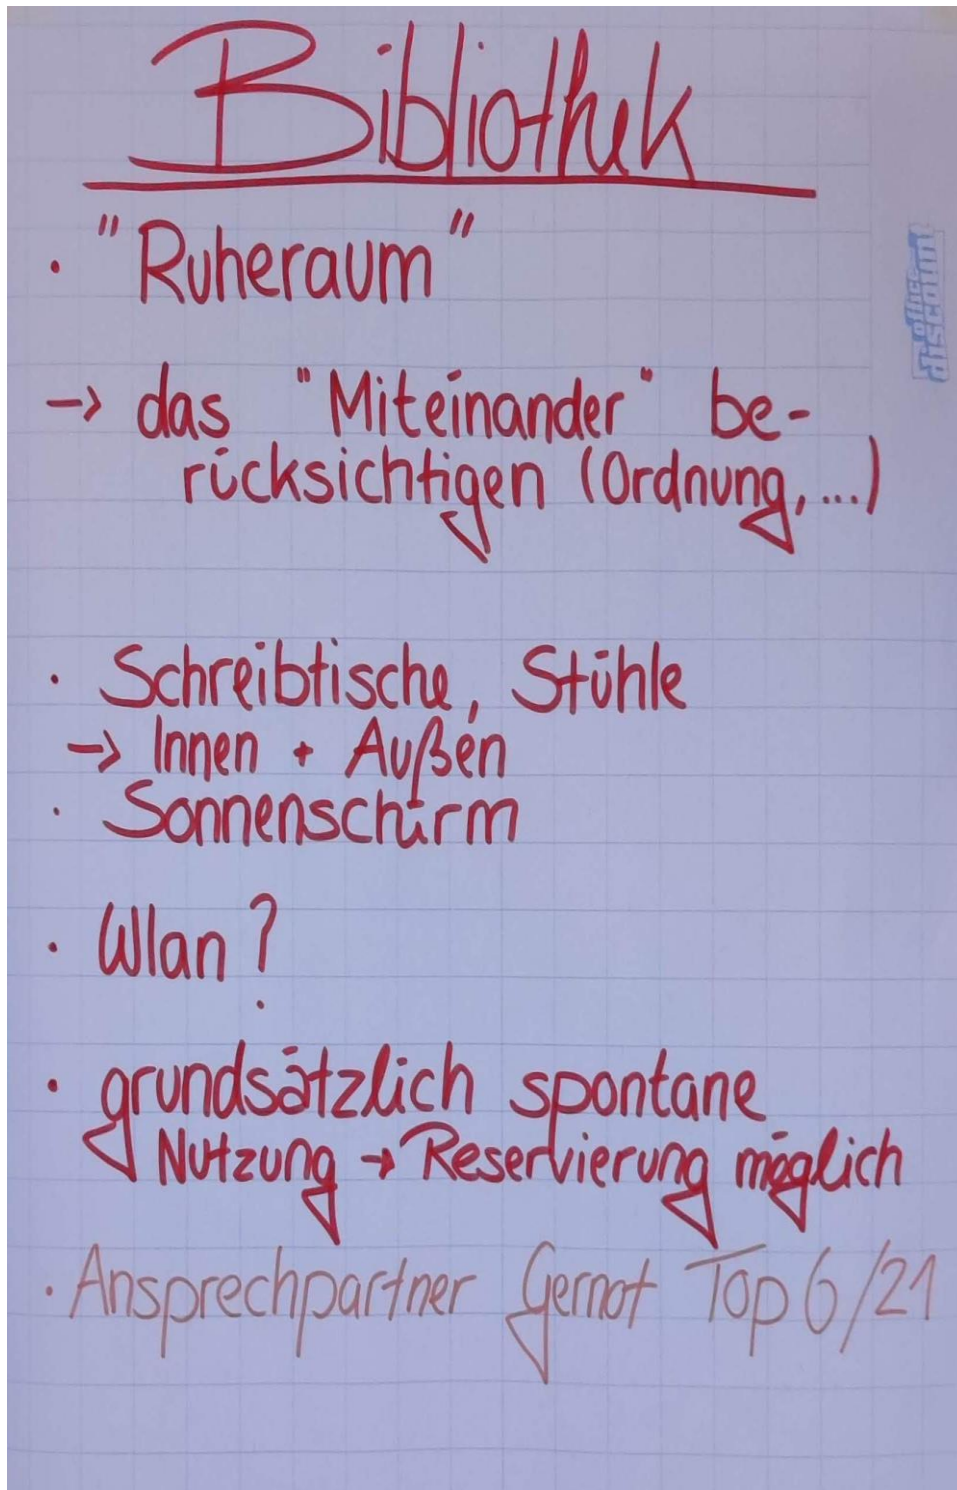 Bibliothek
· "Ruheraum"
→ das "Miteinander" be-
rücksichtigen (Ordnung, ...)
· Schreibtische, Stühle
→ Innen + Außen
· Sonnenschirm
· Wlan?
· grundsätzlich spontane
Nutzung → Reservierung möglich
· Ansprechpartner Gernot Top 6/21
office
discount